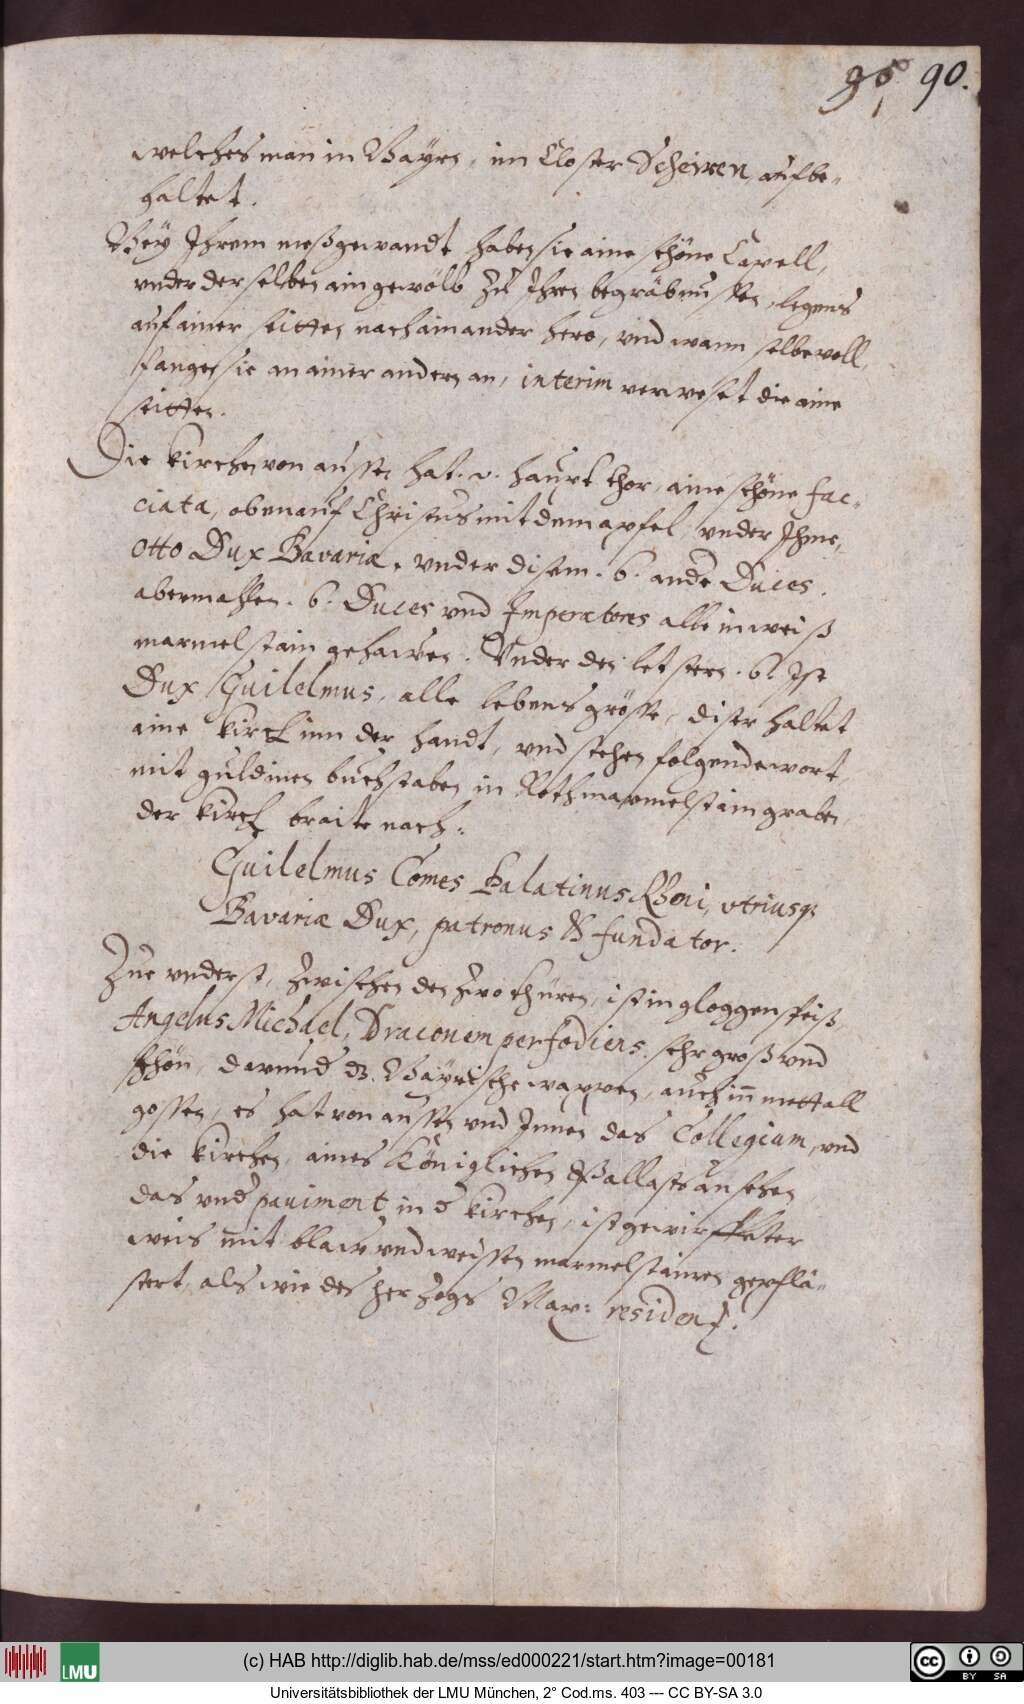 90.
welches man in Bayrn, im Closter Scheiren, aufbe-
haltet.
Bey Ihrem meßgewandt haben sie aine schöne Capell,
vnder derselben ain gewölb zu Ihren begräbnussen, legens
auf ainer seitten nach ainander hero, vnd wann selbe voll,
fangen sie an ainer andern an, interim verweset die aine
seitten.
Die kirchen von aussen hat. v. haupt thor, aine schöne fac-
ciata, oben auf Christus mit dem apfel, vnder Ihme,
Otto Dux Bavariæ, vnder disem. 6. ande Duces.
abermassen. 6. Duces vnd Imperatores alle in weiß
marmelstain gehawen. Vnder den letsten. 6. Ist
Dux Guilelmus, alle lebens grösse, diser haltet
aine kirch inn der handt, vnd stehen folgende wort,
mit guldinen buchstaben in Roth marmelstain graben
der kirch braite nach:
Guilelmus Comes Palatinus Rheni, vtriusq;
Bavariæ Dux, patronus & fundator.
Zue vnderst, zwischen den zwo thüren, ist in gloggenspeiß,
Angelus Michael, Draconem perfodiens. sehr groß vnd
schön, darund dz. Bayrische wappen, auch in mettall
gossen, es hat von aussen vnd Innen das Collegium, vnd
die kirchen, aines Königlichen Pallasts ansehen
das vnd paviment in d kirchen, ist gewirffleter
weis mit blaw vnd weissen marmelstainen gepflä-
stert, als wie des herzogs Max: residenz.
(c) HAB http://diglib.hab.de/mss/ed000221/start.htm?image=00181
LMU
cc BY SA
Universitätsbibliothek der LMU München, 2° Cod.ms. 403 --- CC BY-SA 3.0